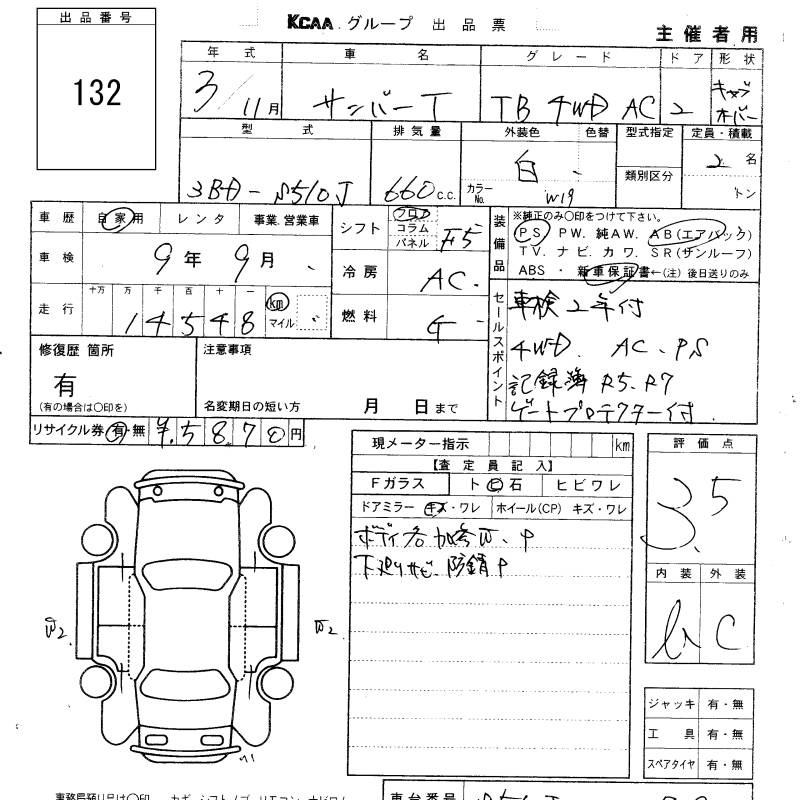 出品番号
132
KCAA グループ 出品票
主催者用
年式 車名 グレード ドア 形状
3/11月 サンバーT TB 4WD AC 2 キャブオーバー
型式 排気量 外装色 色替 型式指定 定員・積載
3BD-S510J 660c.c. 白 カラーNo. W19 類別区分 2名 トン
車歴 自家用 レンタ 事業.営業車
車検 9年 9月
走行 十万 万 千 百 十 一
14548 km マイル
シフト フロア コラム パネル F5
冷房 AC
燃料
装備品
※純正のみ〇印をつけて下さい。
PS PW. 純AW. AB(エアバック)
TV. ナビ. カワ. SR(サンルーフ)
ABS ・ 新車保証書←(注)後日送りのみ
セールスポイント
車検2年付
4WD. AC. PS
記録簿 R5. R7
ゲートプロテクター付
修復歴 箇所
有
(有の場合は〇印を)
注意事項
名変期日の短い方 月 日まで
リサイクル券 有・無 ¥.5870円
現メーター指示 km
【査定員記入】
Fガラス ト ヒ 石 ヒビワレ
ドアミラー キズ・ワレ ホイール(CP) キズ・ワレ
ボディ各 加修W. P
下廻りサビ. 防錆P
評価点
3.5
内装 外装
C
W2 W2
ジャッキ 有・無
工具 有・無
スペアタイヤ 有・無
車台番号